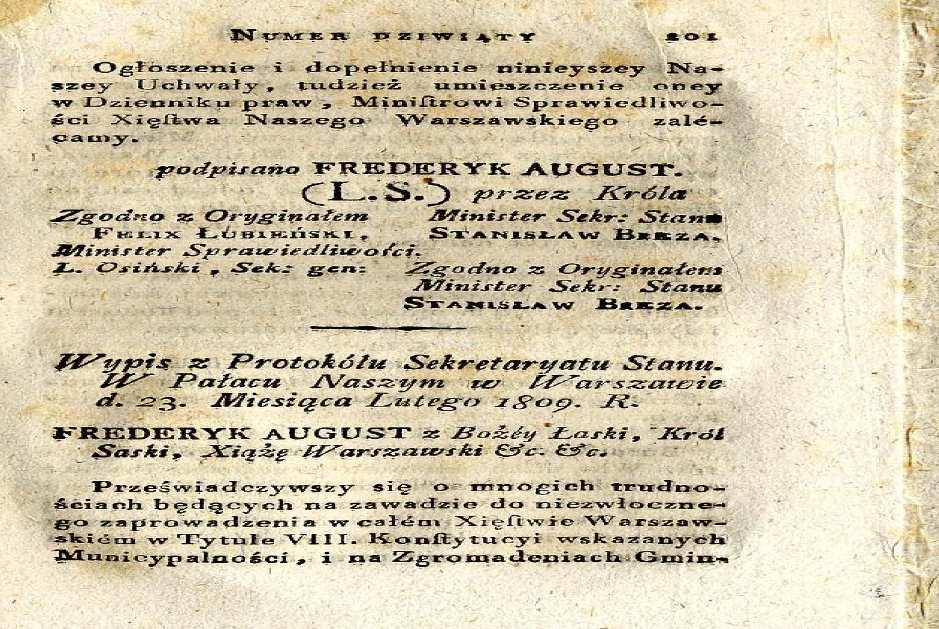 NUMER DZIWIĄTY 201
Ogłoszenie i dopełnienie ninieyszey Na-
szey Uchwały, tudzież umieszczenie oney
w Dzienniku praw, Miniſtrowi Sprawiedliwo-
ści Xięſtwa Naszego Warszawskiego zalé-
camy.
podpisano FREDERYK AUGUST.
(L.S.) przez Króla
Zgodno z Oryginałem Minister Sekr: Stanu
FELIX ŁUBIEŃSKI, STANISŁAW BREZA.
Minister Sprawiedliwoſci.
L. Osiński, Sek: gen: Zgodno z Oryginałem
Minister Sekr: Stanu
STANISŁAW BREZA.
Wypis z Protokółu Sekretaryatu Stanu.
W Pałacu Naszym w Warszawie
d. 23. Miesiąca Lutego 1809. R.
FREDERYK AUGUST z Bożéy Łaski, Król
Saski, Xiążę Warszawski &c. &c.
Przeświadczywszy się o mnogich trudno-
ściach będących na zawadzie do niezwłoczne-
go zaprowadzenia w całém Xięſtwie Warszaw-
skiém w Tytule VIII. Konſtytucyi wskazanych
Municypalności, i na Zgromadeniach Gmin-